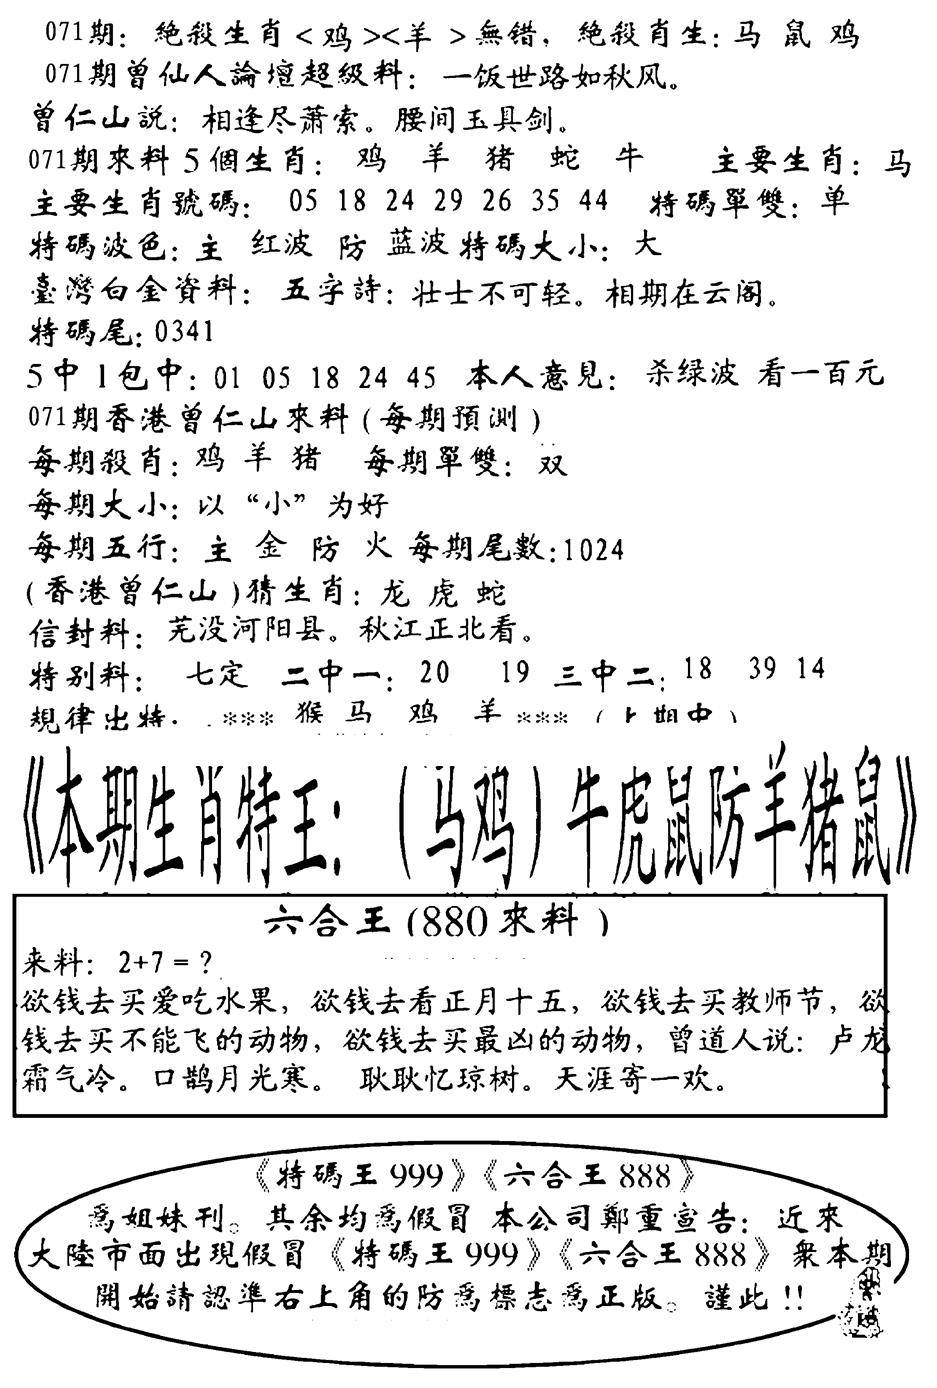 071期：绝殺生肖<鸡><羊 >無错，绝殺肖生：马 鼠 鸡
071期曾仙人論壇超級料：一饭世路如秋风。
曾仁山説：相逢尽萧索。腰间玉具剑。
071期來料5個生肖：鸡 羊 猪 蛇 牛 主要生肖：马
主要生肖號碼：05 18 24 29 26 35 44 特碼單雙：单
特碼波色：主 红波 防 蓝波 特碼大小：大
臺灣白金資料：五字詩：壮士不可轻。相期在云阁。
特碼尾：0341
5中1包中：01 05 18 24 45 本人意見：杀绿波 看一百元
071期香港曾仁山來料(每期預測)
每期殺肖：鸡 羊 猪 每期單雙：双
每期大小：以“小”为好
每期五行：主 金 防 火 每期尾數：1024
(香港曾仁山)猜生肖：龙 虎 蛇
信封料：芜没河阳县。秋江正北看。
特别料：七定 二中一：20 19 三中二：18 39 14
規律出特：***猴 马 鸡 羊***(上期中)
《本期生肖特王：(马鸡)牛虎鼠防羊猪鼠》
六合王(880來料)
来料：2+7=?
欲钱去买爱吃水果，欲钱去看正月十五，欲钱去买教师节，欲
钱去买不能飞的动物，欲钱去买最凶的动物，曾道人说：卢龙
霜气冷。口鹊月光寒。 耿耿忆琼树。天涯寄一欢。
《特碼王999》《六合王888》
爲姐妹刊。其余均爲假冒 本公司鄭重宣告：近來
大陸市面出現假冒《特碼王999》《六合王888》衆本期
開始請認準右上角的防爲標志爲正版。謹此!!